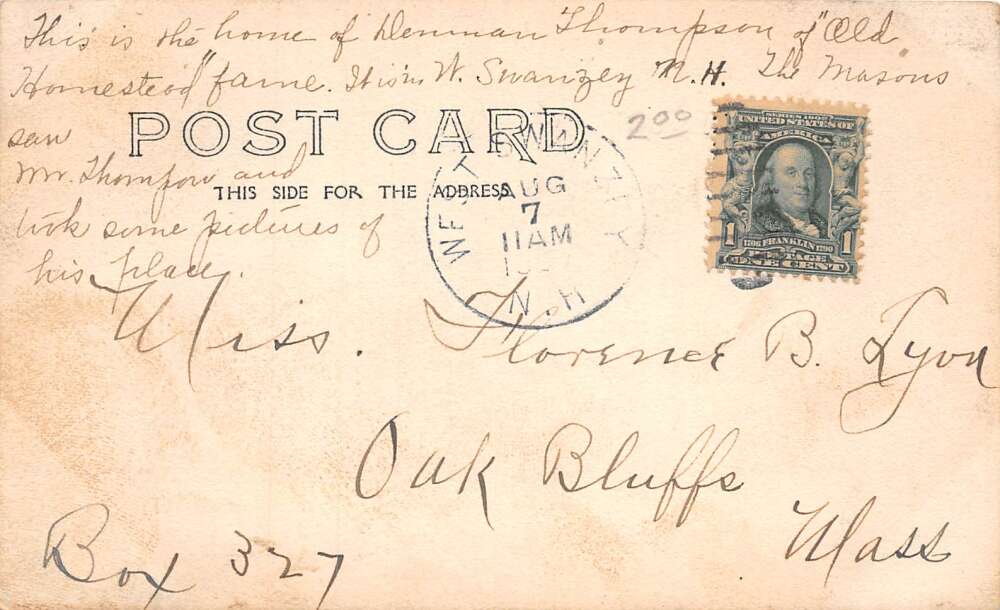 This is the home of Denman Thompson of "Old
Homestead" fame. It is in W. Swanzey N.H. The Masons
saw
Mr. Thompson and
took some pictures of
his place.
POST CARD
THIS SIDE FOR THE ADDRESS.
2.00
WEST SWANZEY
AUG
7
11AM
N.H.
SERIES 1902
UNITED STATES OF
AMERICA
1 1706 FRANKLIN 1790 1
POSTAGE
ONE CENT
Miss. Florence B. Lyon
Oak Bluffs
Mass
Box 327